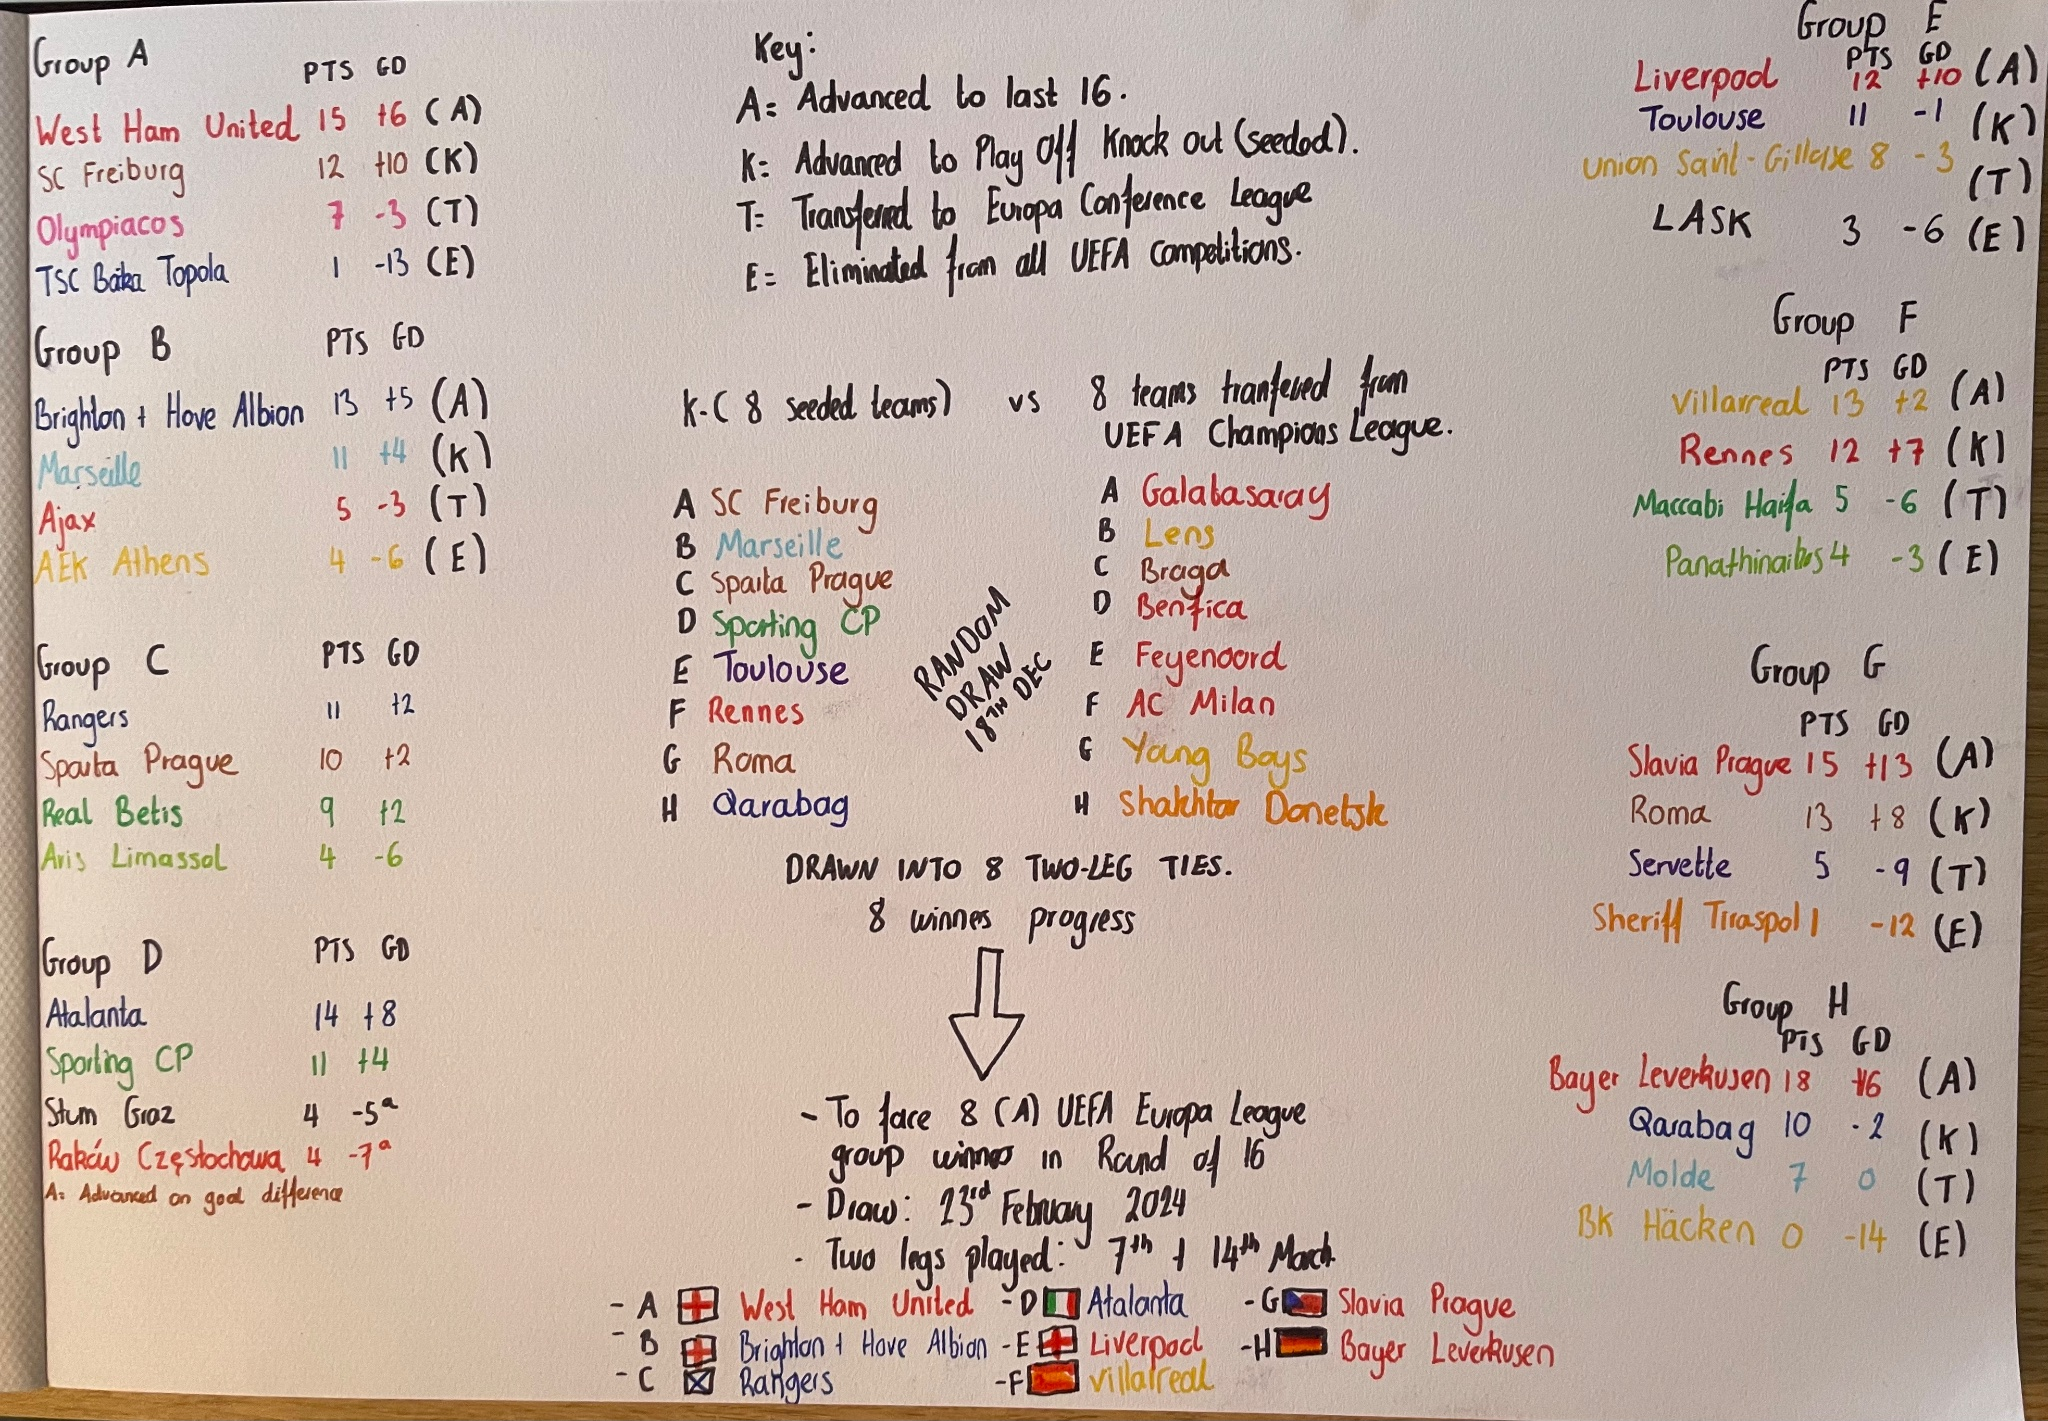 Group A PTS GD
West Ham United 15 +6 (A)
SC Freiburg 12 +10 (K)
Olympiacos 7 -3 (T)
TSC Bačka Topola 1 -13 (E)
Group B PTS GD
Brighton + Hove Albion 13 +5 (A)
Marseille 11 +4 (K)
Ajax 5 -3 (T)
AEK Athens 4 -6 (E)
Group C PTS GD
Rangers 11 +2
Sparta Prague 10 +2
Real Betis 9 +2
Aris Limassol 4 -6
Group D PTS GD
Atalanta 14 +8
Sporting CP 11 +4
Sturm Graz 4 -5ᵃ
Raków Częstochowa 4 -7ᵃ
A= Advanced on goal difference
Key:
A= Advanced to last 16.
K= Advanced to Play Off Knock out (seeded).
T= Transferred to Europa Conference League
E= Eliminated from all UEFA competitions.
K-( 8 seeded teams) vs 8 teams tranfered from
UEFA Champions League.
A SC Freiburg
B Marseille
C Sparta Prague
D Sporting CP
E Toulouse
F Rennes
G Roma
H Qarabag
RANDOM
DRAW
18TH DEC
A Galatasaray
B Lens
C Braga
D Benfica
E Feyenoord
F AC Milan
G Young Boys
H Shakhtar Donetsk
DRAWN INTO 8 TWO-LEG TIES.
8 winnes progress
- To face 8 (A) UEFA Europa League
group winnes in Round of 16
- Draw: 23rd February 2024
- Two legs played: 7th + 14th March
- A West Ham United - D Atalanta - G Slavia Prague
- B Brighton + Hove Albion - E Liverpool - H Bayer Leverkusen
- C Rangers - F Villarreal
Group E
PTS GD
Liverpool 12 +10 (A)
Toulouse 11 -1 (K)
Union Saint-Gilloise 8 -3 (T)
LASK 3 -6 (E)
Group F
PTS GD
Villarreal 13 +2 (A)
Rennes 12 +7 (K)
Maccabi Haifa 5 -6 (T)
Panathinaikos 4 -3 (E)
Group G
PTS GD
Slavia Prague 15 +13 (A)
Roma 13 +8 (K)
Servette 5 -9 (T)
Sheriff Tiraspol 1 -12 (E)
Group H
PTS GD
Bayer Leverkusen 18 +16 (A)
Qarabag 10 -2 (K)
Molde 7 0 (T)
BK Häcken 0 -14 (E)